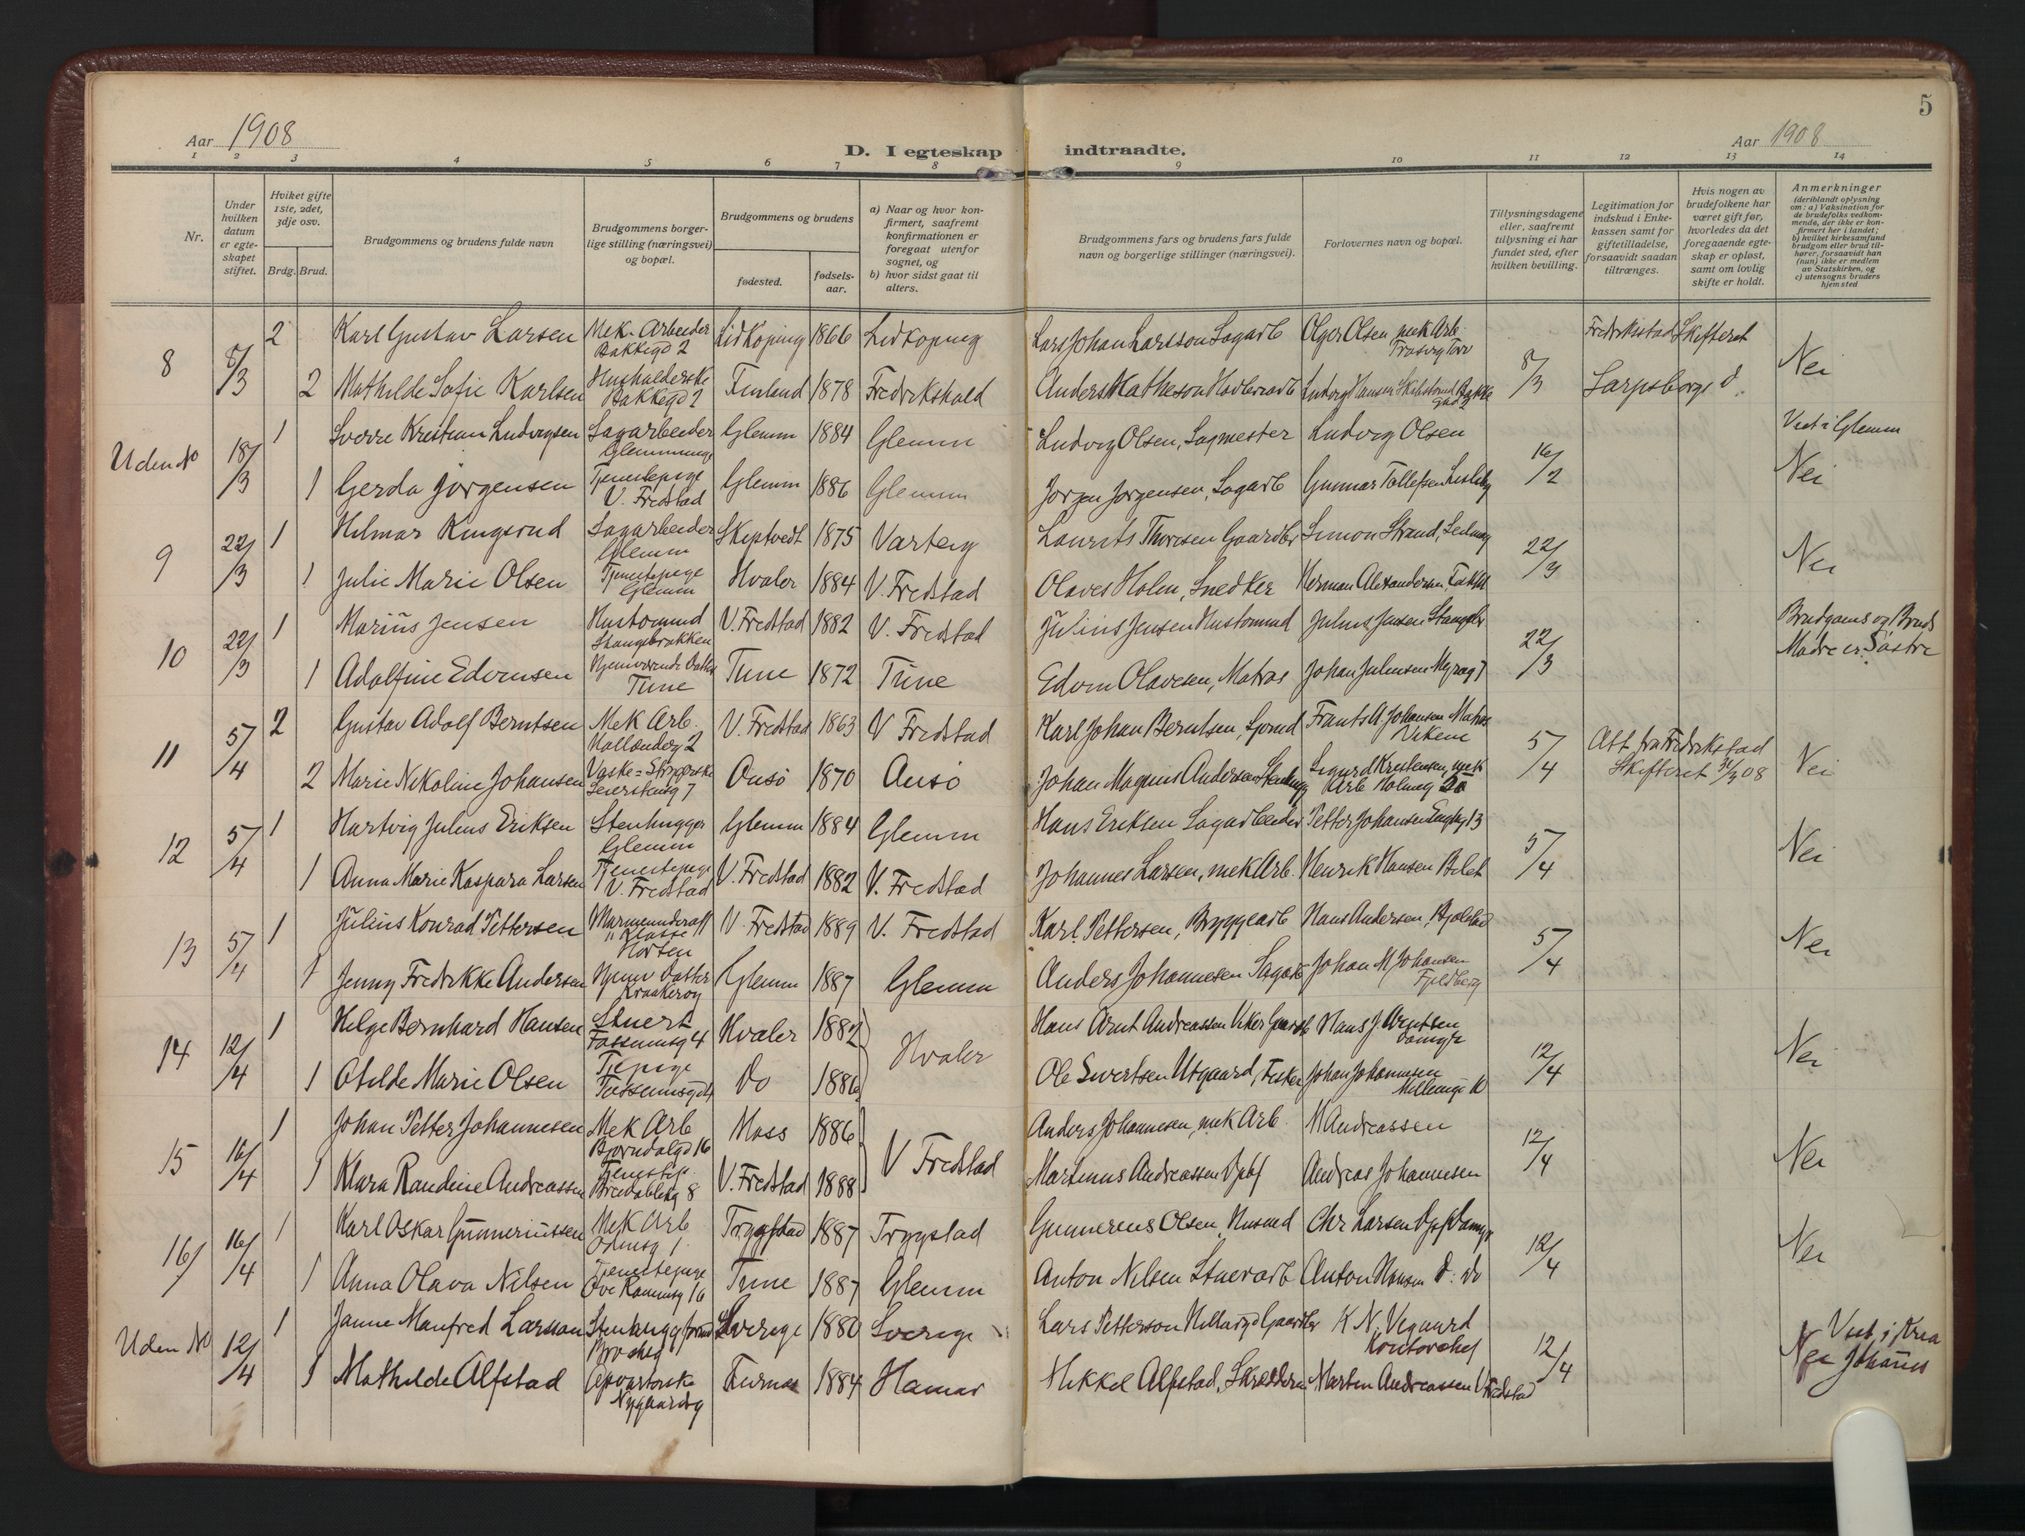 5
Aar 1908
D. I egteskap indtraadte.
Aar 1908
1 2 3 4 5 6 7 8 9 10 11 12 13 14
Nr.
Under hvilken datum er egteskapet stiftet.
Hviket gifte 1ste, 2det, 3dje osv.
Brdg. Brud.
Brudgommens og brudens fulde navn
Brudgommens borgerlige stilling (næringsvei) og bopæl.
Brudgommens og brudens
fødested.
fødselsaar.
a) Naar og hvor konfirmert, saafremt konfirmationen er foregaat utenfor sognet, og
b) hvor sidst gaat til alters.
Brudgommens fars og brudens fars fulde navn og borgerlige stillinger (næringsvei).
Forlovernes navn og bopæl.
Tillysningsdagene eller, saafremt tillysning ei har fundet sted, efter hvilken bevilling.
Legitimation for indskud i Enkekassen samt for giftetilladelse, forsaavidt saadan tiltrænges.
Hvis nogen av brudefolkene har været gift før, hvorledes da det foregaaende egteskap er opløst, samt om lovlig skifte er holdt.
Anmerkninger (deriblandt oplysning om: a) Vaksination for de brudefolks vedkommende, der ikke er konfirmert her i landet; b) hvilket kirkesamfund brudgom eller brud tilhører, forsaavidt han (hun) ikke er medlem av Statskirken, og c) utensogns bruders hjemsted
8 8/3 2 Karl Gustav Larsen Mek. Arbeider Bakkegd 2 Lidkoping 1866 Lidkoping Lars Johan Larsson Sagarb Olger Olsen mek Arb. 8/3 Fredrikstad Skifteret Nei
2 Mathilde Sofie Karlsen Husholderske Bakkegd 2 Finland 1878 Fredrikshald Anders Matheson Ludvig Hansen Sarpsborgs d.
Uden No 18/3 1 Sverre Kristian Ludvigsen Sagarbeider Glemm 1884 Glemm Ludvig Olsen, Sagmester Ludvig Olsen 16/2 Viet i Glemm Nei
1 Gerda Jørgensen Tjenestepige V. Fredstad Glemm 1886 Glemm Jørgen Jørgensen, Sagarb Gunnar Tollefsen
9 22/3 1 Hilmar Kingsrud Sagarbeider Glemm Skiptvedt 1875 Varteig Laurits Thoresen Gaardbr Simon Strand, 22/3 Nei
1 Julie Marie Olsen Tjenestepige Glemm Hvaler 1884 V. Fredstad Olaves Holen, Snedker Herman Alexandersen
10 22/3 1 Marius Jensen Hustomand V. Fredstad 1882 V. Fredstad Julius Jensen Hustomand Julius Jensen 22/3 Brudgoms og Bruds Mødre er Søstre
1 Adolfine Edvinsen Hjemværende Datter Tune Tune 1872 Tune Edvin Olavesen, Matros Johan Julensen Myrag 7
11 5/4 2 Gustav Adolf Berntsen Mek Arb. Hollenderg 2 V. Fredstad 1863 V Fredstad Karl Johan Berntsen, Frants A. Johansen Matros 5/4 Att. fra Fredrikstad Skifteret 31/3 08 Nei
2 Marie Nikoline Johansen Vaske- Onsø 1870 Onsø Johan Magnus Andersen Sigurd Kristensen, mek Arb
12 5/4 1 Hartvig Julius Eriksen Stenhugger Glemm Glemm 1884 Glemm Hans Eriksen Sagarbeider Petter Johansen 5/4 Nei
1 Anna Marie Kaspara Larsen Tjenestepige V. Fredstad V. Fredstad 1882 V. Fredstad Johannes Larsen, mek Arb. Henrik Hansen
13 5/4 1 Julius Konrad Pettersen Horten V. Fredstad 1889 V. Fredstad Karl Pettersen, Bryggearb Hans Andersen, 5/4 Nei
1 Jenny Fredrikke Andersen Hjemv Datter Kraakerøy Glemm 1887 Glemm Anders Johannesen Sagarb Johan M Johansen Fjeldberg
14 12/4 1 Helge Bernhard Hansen Stuert Hvaler 1882 Hvaler Hans Arnt Andreassen Hans J Arntsen 12/4 Nei
1 Otilde Marie Olsen Tjepige Do 1886 Ole Sivertsen Utgaard, Fisker Johan Johannesen
15 16/4 1 Johan Petter Johannesen Mek Arb Bjørndalgd 16 Moss 1886 V Fredstad Anders Johannesen, mek Arb. M Andreassen 12/4 Nei
1 Klara Randine Andreassen V. Fredstad 1888 Martinus Andreassen Andreas Johannesen
16/ 16/4 1 Karl Oskar Gunneriussen Mek Arb Odinsg 1. Trygstad 1887 Trygstad Gunnerius Olsen, Husmd Chr Larsen 12/4 Nei
1 Anna Olava Nilsen Tjenestepige Tune 1887 Glemm Anton Nilsen Stuerarb Anton Hansen d: do
Uden No 12/4 1 Janne Manfred Larsson Sverige 1880 Sverige Lars Petterson K. N. Vegaard Kontorchef 12/4 Viet i Kra Johannes Nei
1 Mathilde Alfstad Opvarterske Nygaardsg Furnes 1884 Hamar Mikkel Alfstad, Skrædder Martin Andreassen V Fredstad